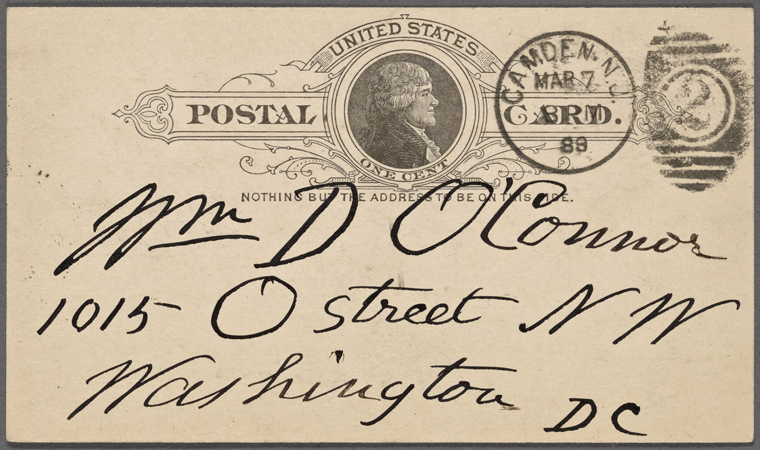 UNITED STATES
POSTAL CARD.
ONE CENT
NOTHING BUT THE ADDRESS TO BE ON THIS SIDE.
CAMDEN. N.J.
MAR 7
8 M
89
2
Wm D O'Connor
1015 O street N W
Washington
D C